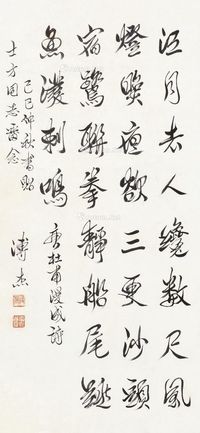 江月去人纔數尺風
燈照夜欲三更沙頭
宿鷺聯拳靜船尾跳
魚潑剌鳴
唐杜甫漫成詩
己巳仲秋書贈
士方同志齋念
溥杰